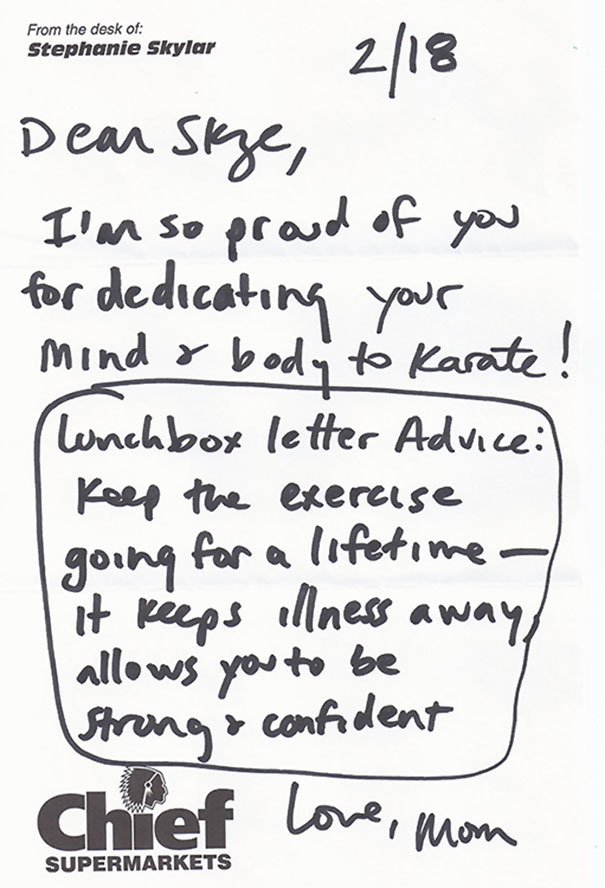 From the desk of:
Stephanie Skylar
2/18
Dear Skye,
I'm so proud of you
for dedicating your
mind & body to Karate!
Lunchbox letter Advice:
Keep the exercise
going for a lifetime —
it keeps illness away,
allows you to be
strong & confident
Love, Mom
Chief
SUPERMARKETS